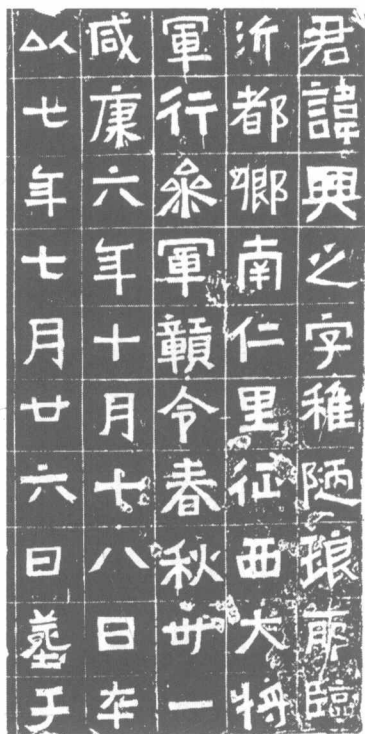 君諱興之字稚陋琅耶臨
沂都鄉南仁里征西大將
軍行參軍贑令春秋卅一
咸康六年十月十八日卒
以七年七月廿六日塟于